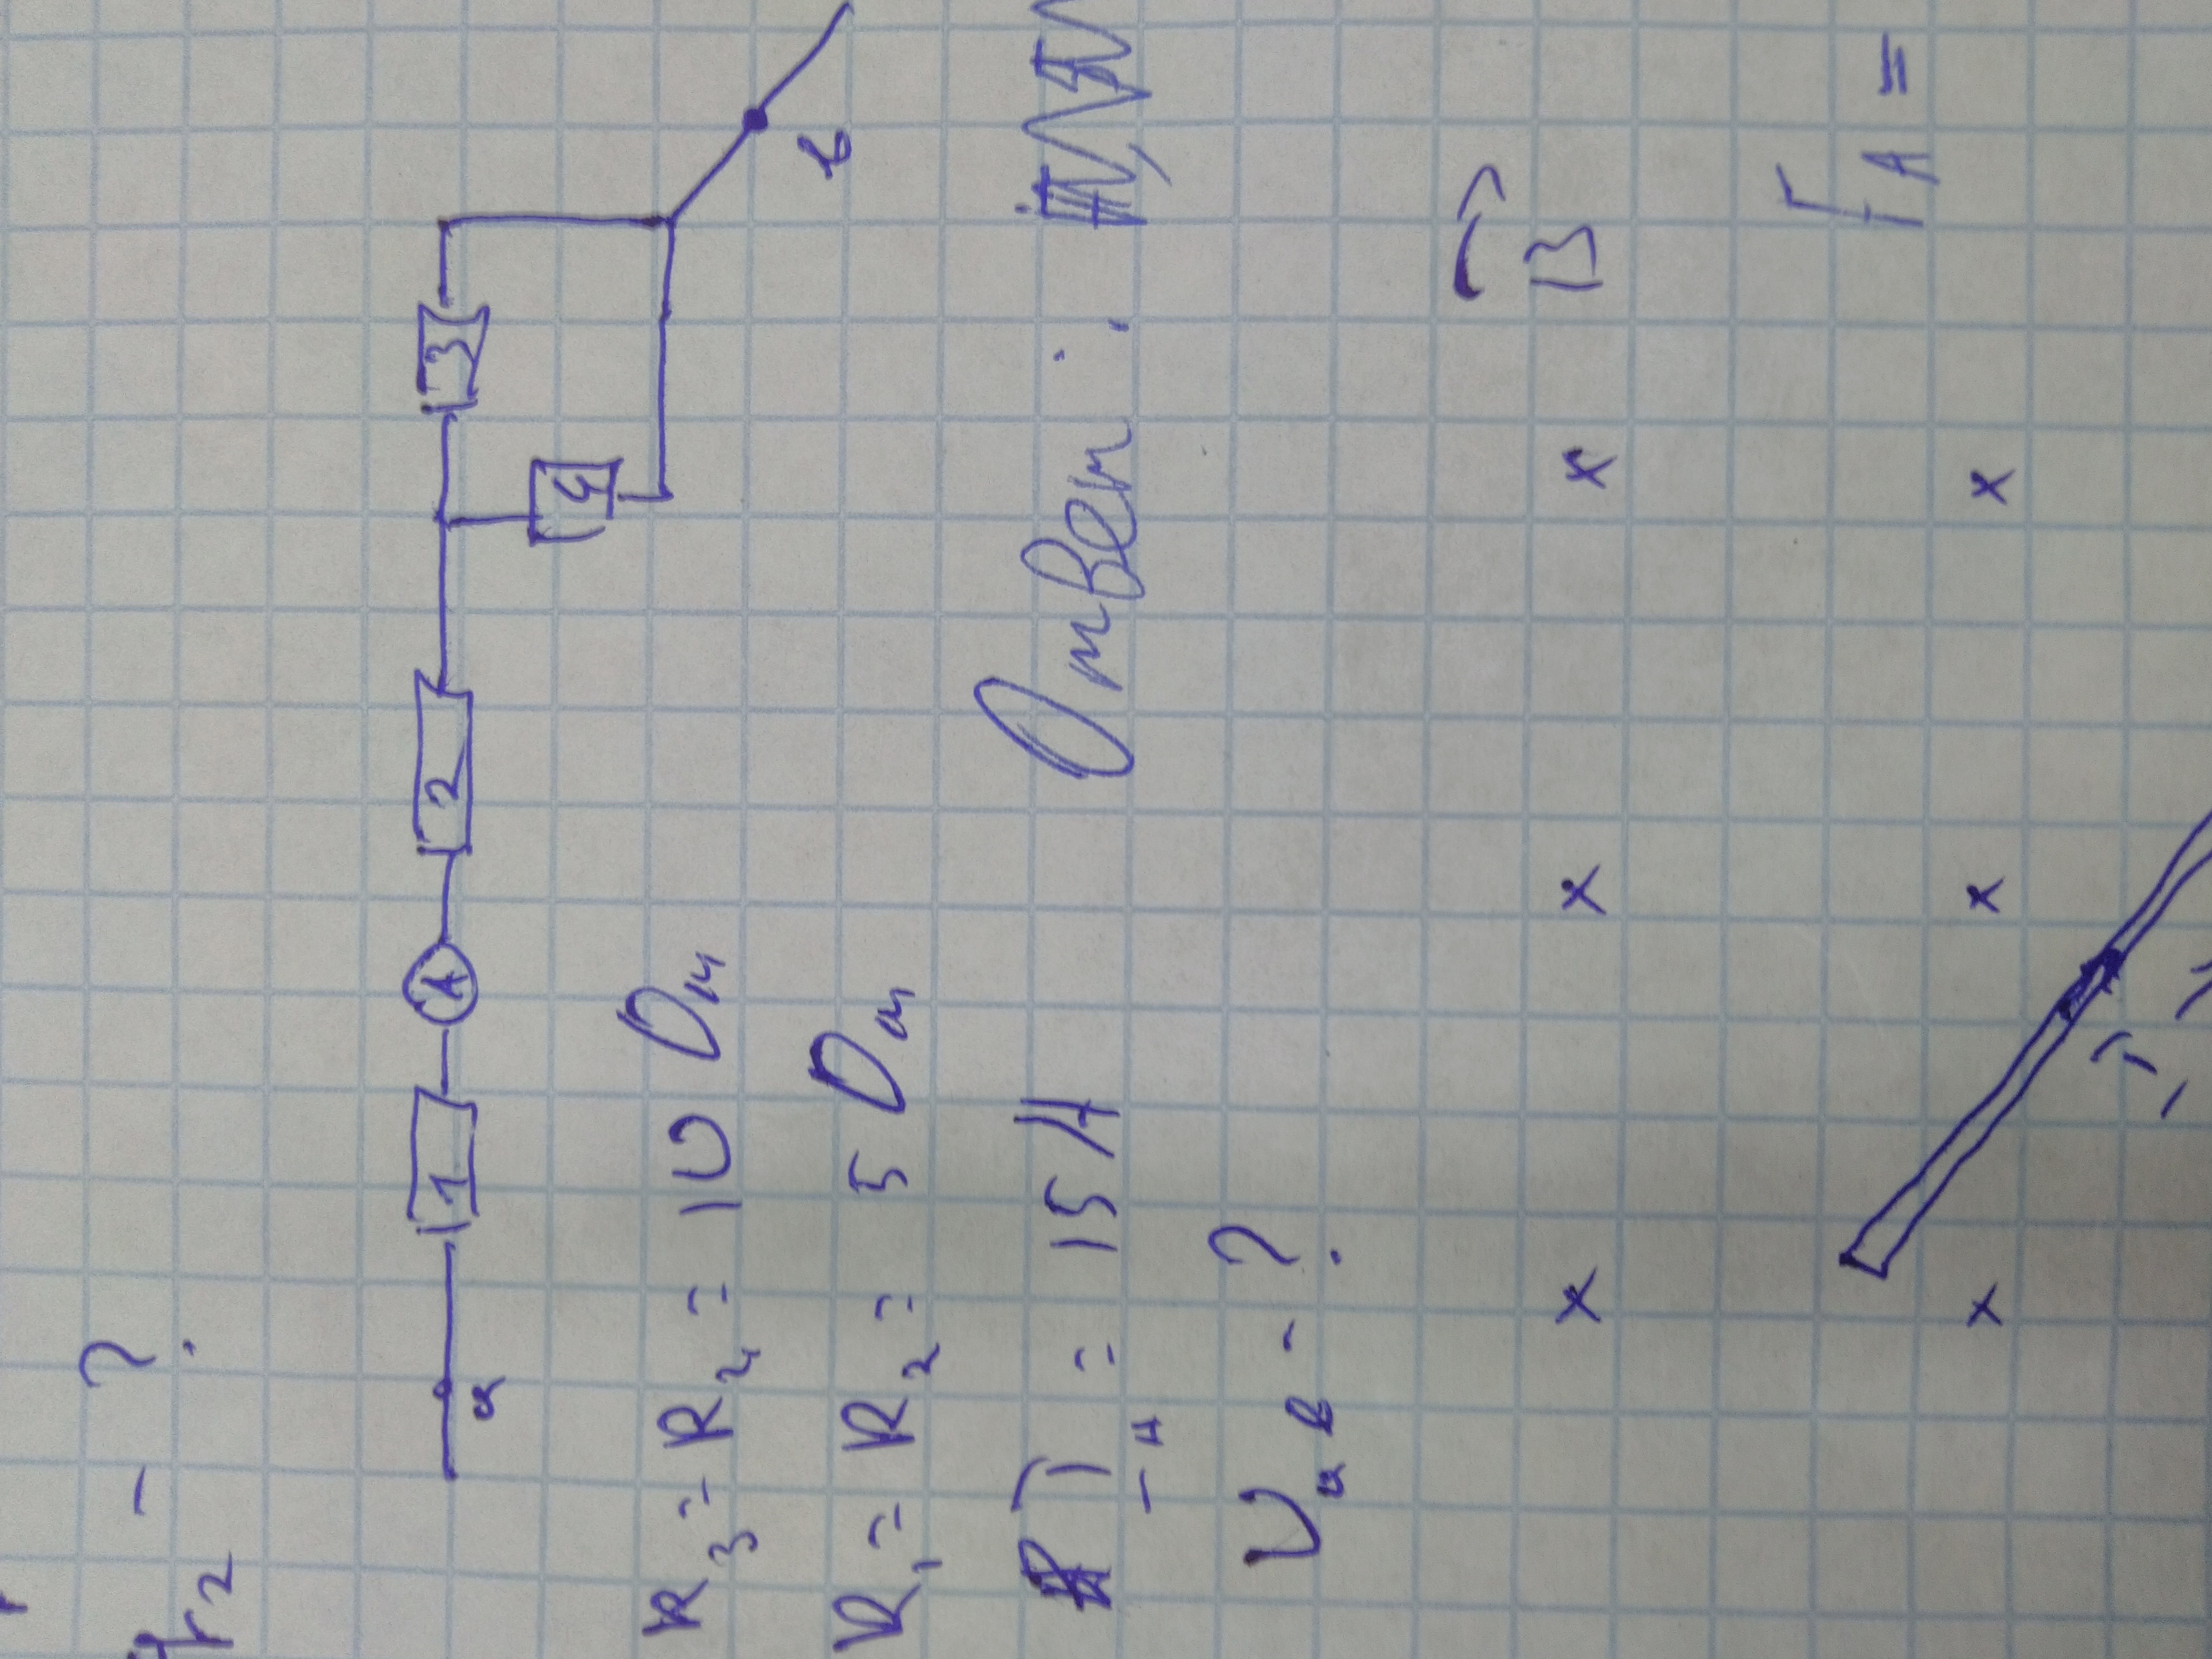 r₂ - ?
a 1 A 2 4 3 в
R₃ = R₄ = 10 Ом
R₁ = R₂ = 5 Ом
= 15 А
U ав - ?
Ответ:
x x x B
x x x F A =